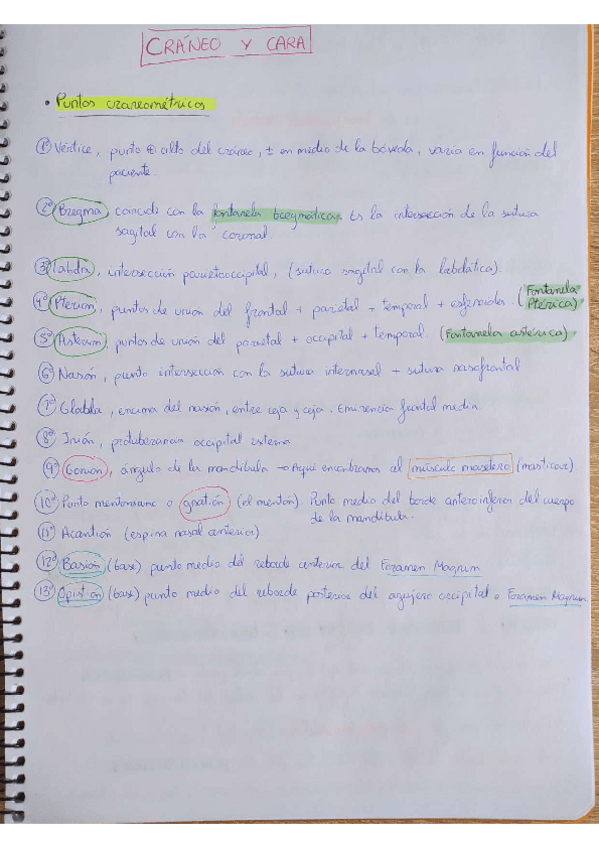 CRÁNEO Y CARA
• Puntos craneométricos
1º Vértice, punto ⊕ alto del cráneo, ± en medio de la bóveda, varía en función del
paciente.
2º Bregma, coincide con la fontanela bregmática. Es la intersección de la sutura
sagital con la coronal.
3º Labda, intersección parietooccipital, (sutura sagital con la labdática).
4º Pterion, puntos de union del frontal + parietal - temporal + esfenoides. (Fontanela
Ptérica)
5º Asterium, puntos de unión del parietal + occipital + temporal. (Fontanela astérica)
6º Nasión, punto intersección con la sutura internasal + sutura nasofrontal
7º Glabela, encima del nasión, entre ceja y ceja. Eminencia frontal media
8º Inión, protuberancia occipital externa
9º Gonion, ángulo de la mandíbula → Aquí encontramos al músculo masetero (masticar)
10º Punto mentoniano o gnatión (el mentón). Punto medio del borde anteroinferior del cuerpo
de la mandíbula.
11º Acantión (espina nasal anterior).
12º Basión (base) punto medio del reborde anterior del Foramen Magnum
13º Opistion (base) punto medio del reborde posterior del agujero occipital o Foramen Magnum